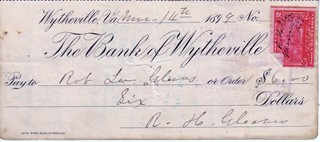 Wytheville, Va. 14th 1899 No.
The Bank of Wytheville
Pay to Rob or Order $6.00
Six Dollars
R. H. Gleaves